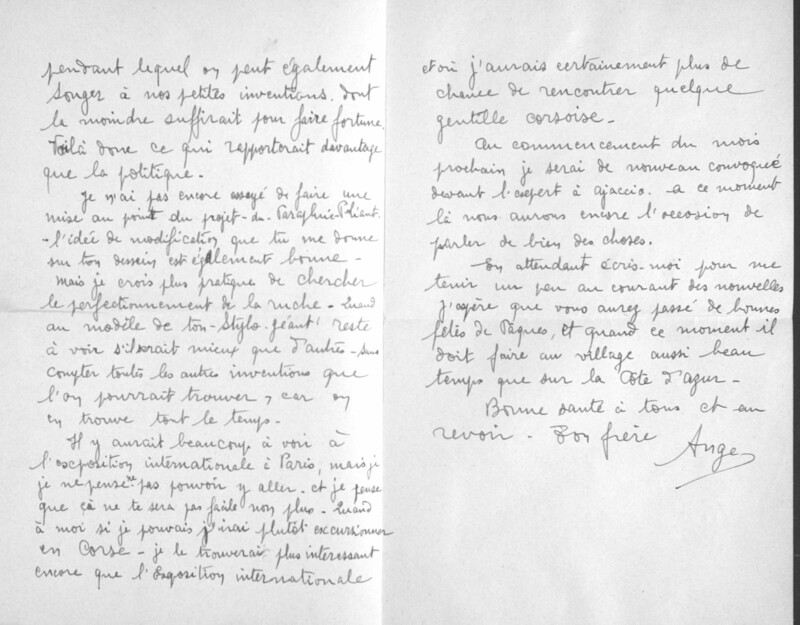 pendant lequel on peut également
songer à nos petites inventions. dont
la moindre suffirait pour faire fortune.
Voilà donc ce qui rapporterait davantage
que la politique -
Je n'ai pas encore essayé de faire une
mise au point du projet - du - Paraphie-Pliant.
- l'idée de modification que tu me donne
sur ton dessein est également bonne -
Mais je crois plus pratique de chercher
le perfectionnement de la ruche - Quand
au modèle de ton - Stylo - géant' reste
à voir s'il serait mieux que d'autres - sans
compter toutes les autres inventions que
l'on pourrait trouver, car on
en trouve tout le temps -
Il y aurait beaucoup à voir à
l'exposition internationale à Paris, mais je
je ne pense pas pouvoir y aller. et je pense
que çà ne te sera pas facile non plus - Quand
à moi si je pouvais j'irai plutôt excursionner
en Corse - je le trouverai plus interessant
encore que l'Exposition internationale
et où j'aurais certainement plus de
chance de rencontrer quelque
gentille corsoise -
Au commencement du mois
prochain je serai de nouveau convoqué
devant l'expert à ajaccio. a ce moment
là nous aurons encore l'occasion de
parler de bien des choses.
En attendant écris-moi pour me
tenir un peu au courant des nouvelles
j'espère que vous aurez passé de bonnes
fêtes de Pâques, et quand ce moment il
doit faire au village aussi beau
temps que sur la Côte d'azur -
Bonne santé à tous et au
revoir - Ton frère
Ange